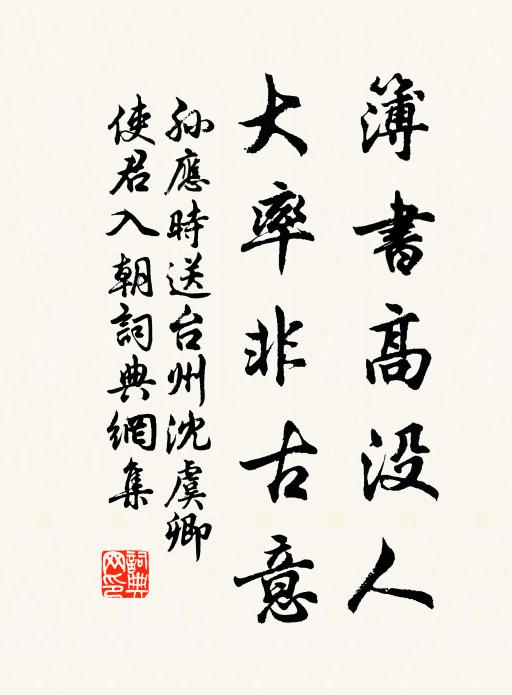 簿書高没人
大率非古意
孫應時送台州沈虞卿
使君入朝詞典網集
詞典
网印